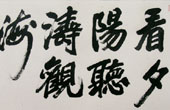 看夕
陽聽
濤觀
海